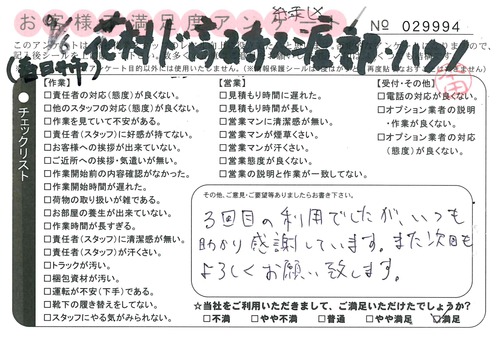 お客様満足度アンケート
No 029994
9/6
チェックリスト
【作業】
□責任者の対応(態度)が良くない。
□他のスタッフの対応(態度)が良くない。
□作業を見ていて不安がある。
□責任者(スタッフ)に好感が持てない。
□お客様への挨拶が出来ていない。
□ご近所への挨拶・気遣いが無い。
□作業開始前の内容確認がなかった。
□作業開始時間が遅れた。
□荷物の取り扱いが雑である。
□お部屋の養生が出来ていない。
□作業時間が長すぎる。
□責任者(スタッフ)に清潔感が無い。
□責任者(スタッフ)が汗くさい。
□トラックが汚い。
□梱包資材が汚い。
□運転が不安(下手)である。
□靴下の履き替えをしてない。
□スタッフにやる気がみられない。
【営業】
□見積もり時間に遅れた。
□見積もり時間が長い。
□営業マンに清潔感が無い。
□営業マンが煙草くさい。
□営業マンが汗くさい。
□営業態度が良くない。
□営業の説明と作業が一致してない。
【受付・その他】
□電話の対応が良くない。
□オプション業者の説明
・作業が良くない。
□オプション業者の対応
(態度)が良くない。
その他、ご意見・ご要望等ありましたらお書き下さい。
3回目の利用でしたが、いつも
助かり感謝しています。また次回も
よろしくお願い致します。
☆当社をご利用いただきまして、ご満足いただけたでしょうか?
□不満 □やや不満 □普通 □やや満足 □満足